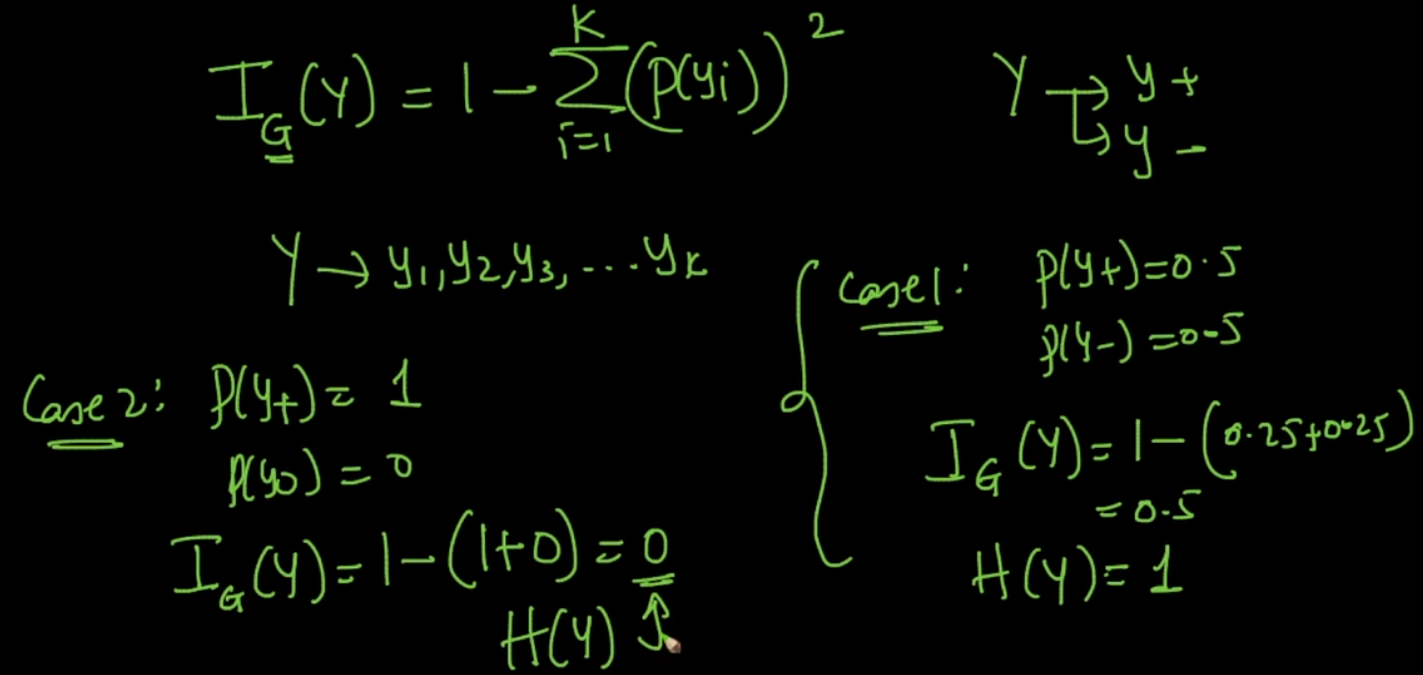 I_G(Y) = 1 - K Σ i=1 (P(yi))²
Y → y+
↳ y-
Y → y1, y2, y3, ... yk
Case 1: P(y+) = 0.5
P(y-) = 0.5
I_G(Y) = 1 - (0.25+0.25)
= 0.5
H(Y) = 1
Case 2: P(y+) = 1
P(y0) = 0
I_G(Y) = 1 - (1+0) = 0
H(Y) ↑